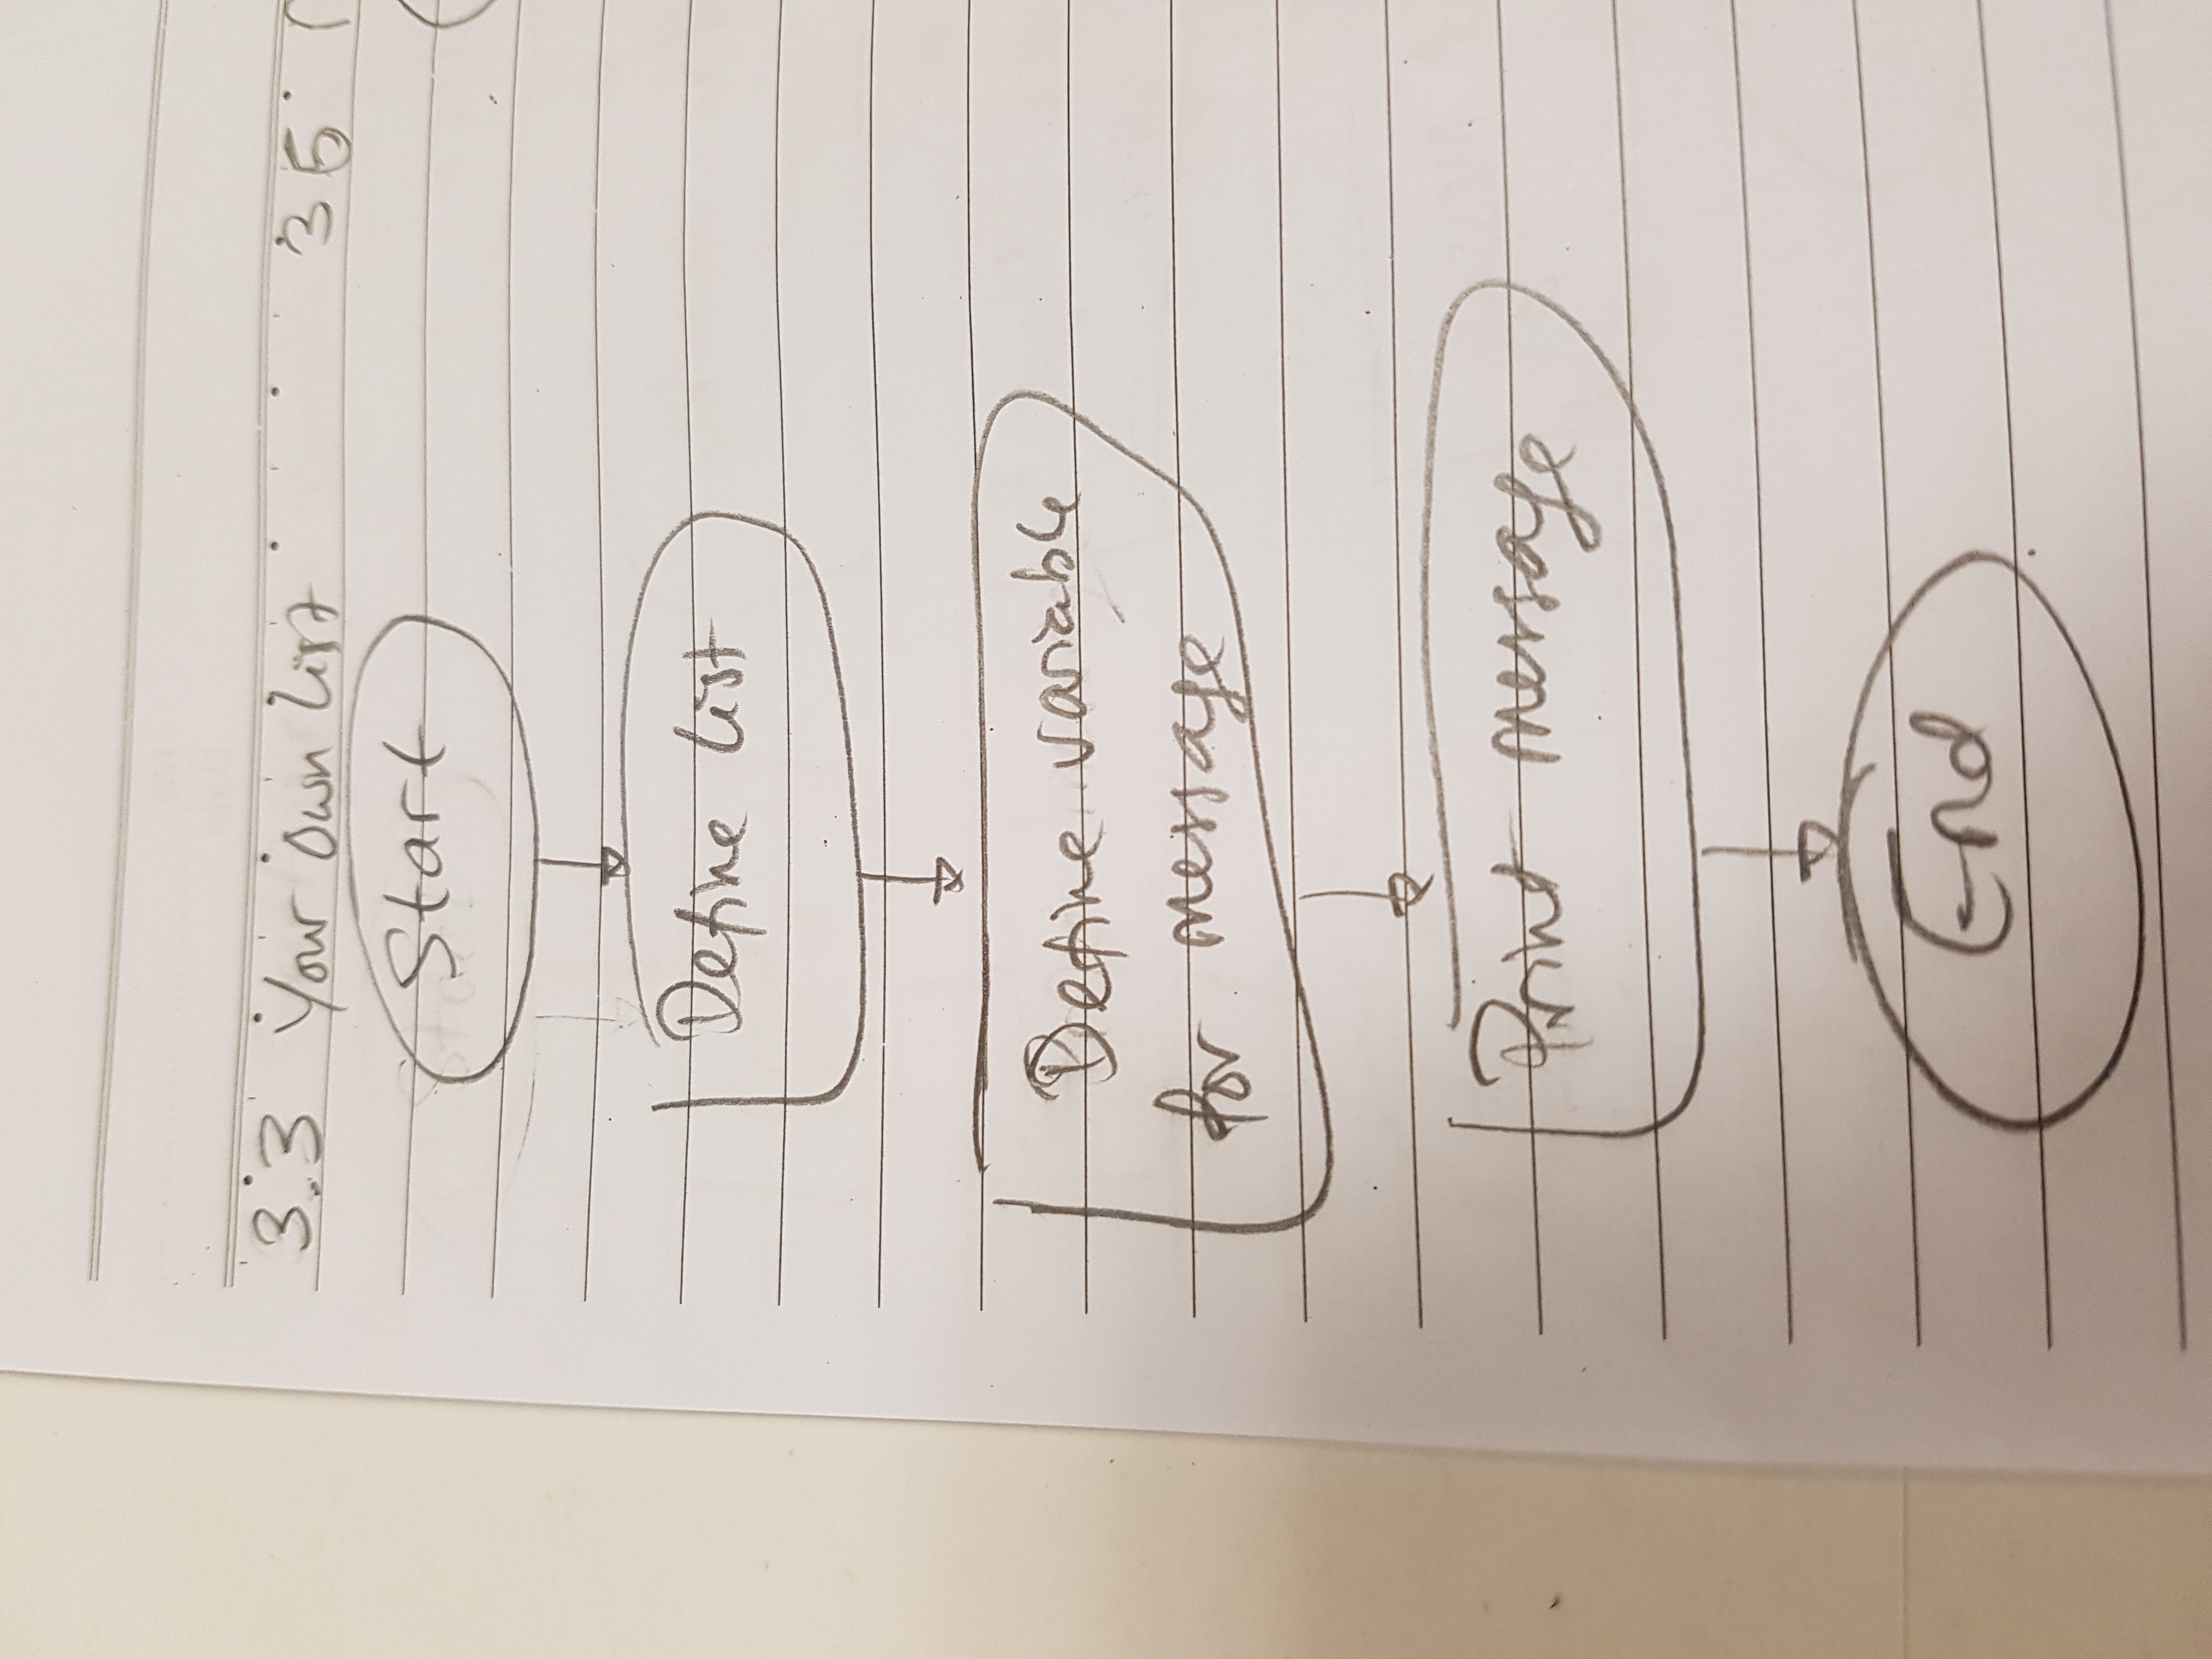 3.3 Your Own List
35
Start
Define list
Define variable
for message
Print message
End